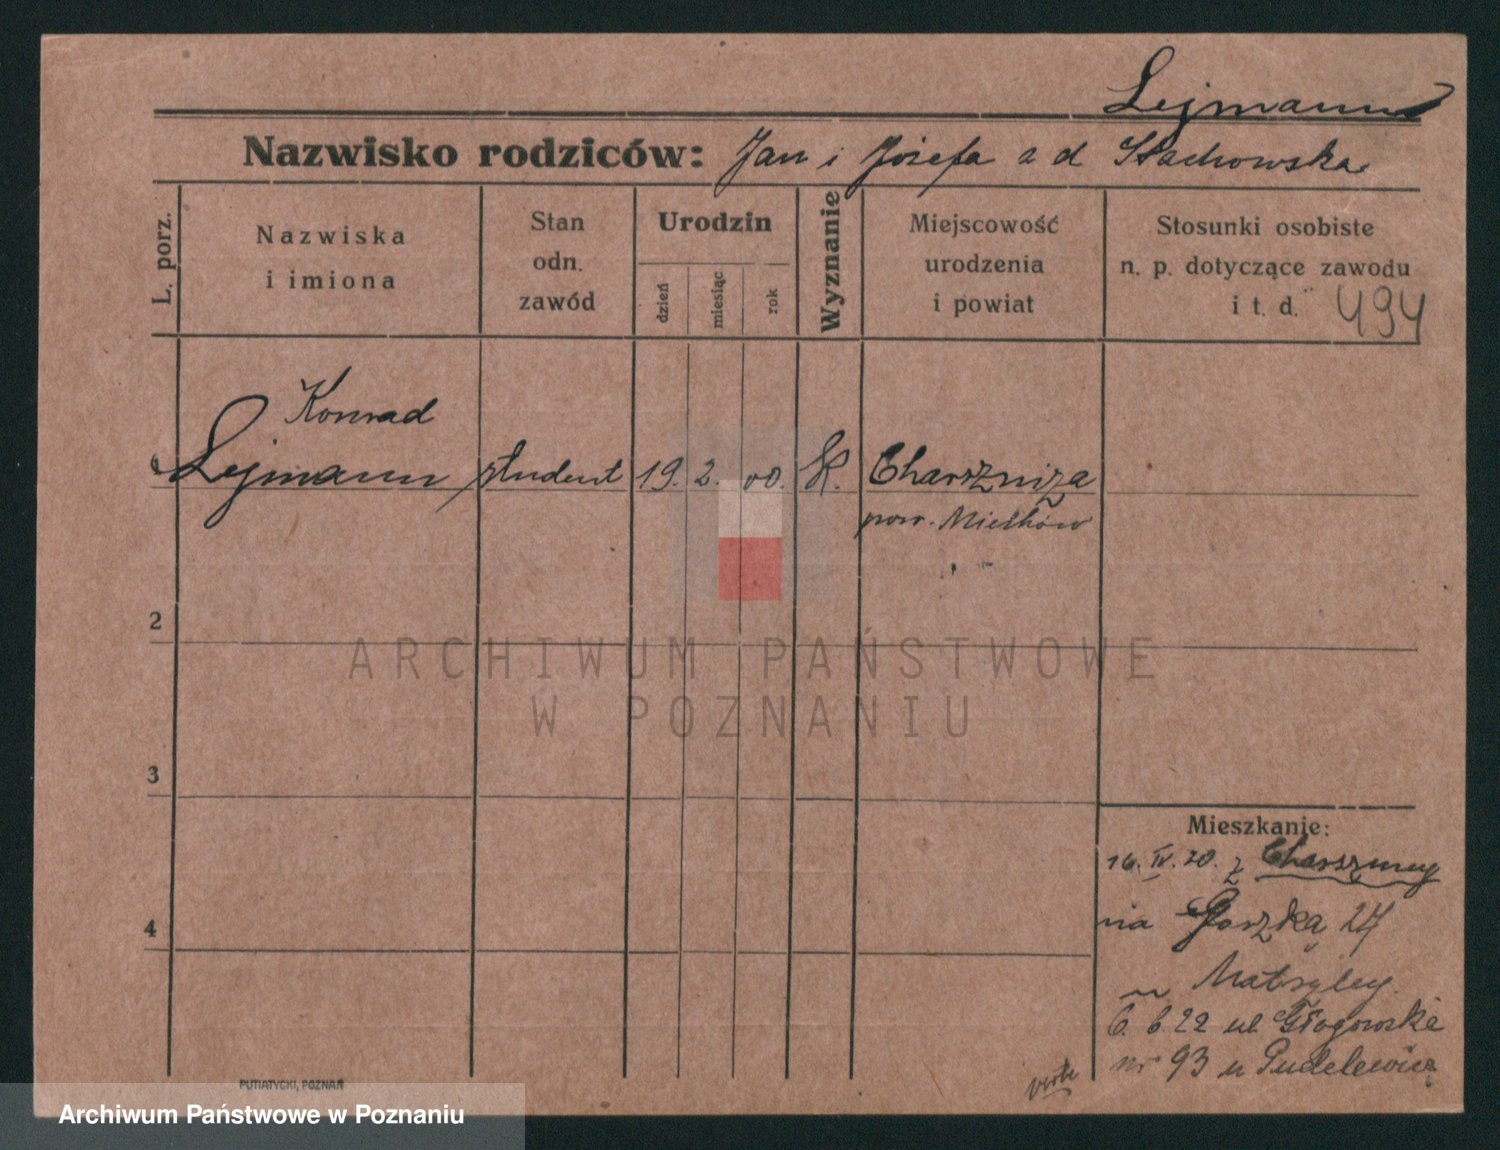 Lejmann
Nazwisko rodziców: Jan i Józefa z d Stachowska
L. porz.
Nazwiska
i imiona
Stan
odn.
zawód
Urodzin
dzień
miesiąc
rok
Wyznanie
Miejscowość
urodzenia
i powiat
Stosunki osobiste
n. p. dotyczące zawodu
i t. d. 494
Konrad
1 Lejmann student 19. 2. 00. K. Charszniza
pow. Miechów
2
ARCHIWUM PAŃSTWOWE
W POZNANIU
3
Mieszkanie:
16. IV. 20. z
4
na 27
6. 6. 22 ul. Głogowska
nr 93 u Pudelewicz
verte
PUTIATYCKI, POZNAŃ
Archiwum Państwowe w Poznaniu